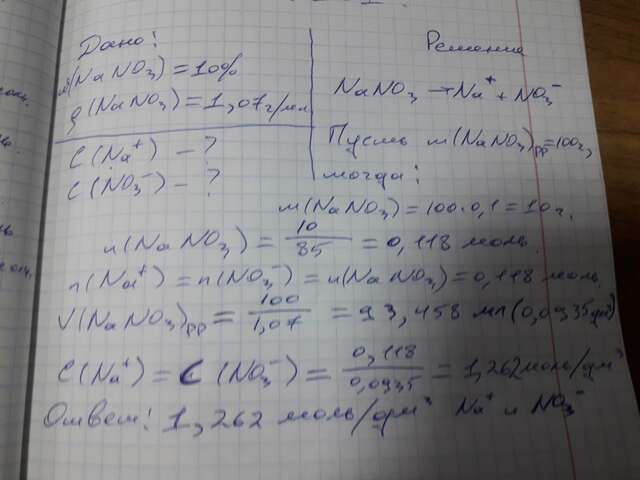 Дано:
w(NaNO₃) = 10%
ρ(NaNO₃) = 1,07 г/мл
C(Na⁺) – ?
C(NO₃⁻) – ?
Решение
NaNO₃ → Na⁺ + NO₃⁻
Пусть m(NaNO₃)рр = 100г,
тогда:
m(NaNO₃) = 100·0,1 = 10 г.
n(NaNO₃) = 10/85 = 0,118 моль.
n(Na⁺) = n(NO₃⁻) = n(NaNO₃) = 0,118 моль.
V(NaNO₃)рр = 100/1,07 = 93,458 мл (0,0935 дм³)
C(Na⁺) = C(NO₃⁻) = 0,118/0,0935 = 1,262 моль/дм³
Ответ: 1,262 моль/дм³ Na⁺ и NO₃⁻